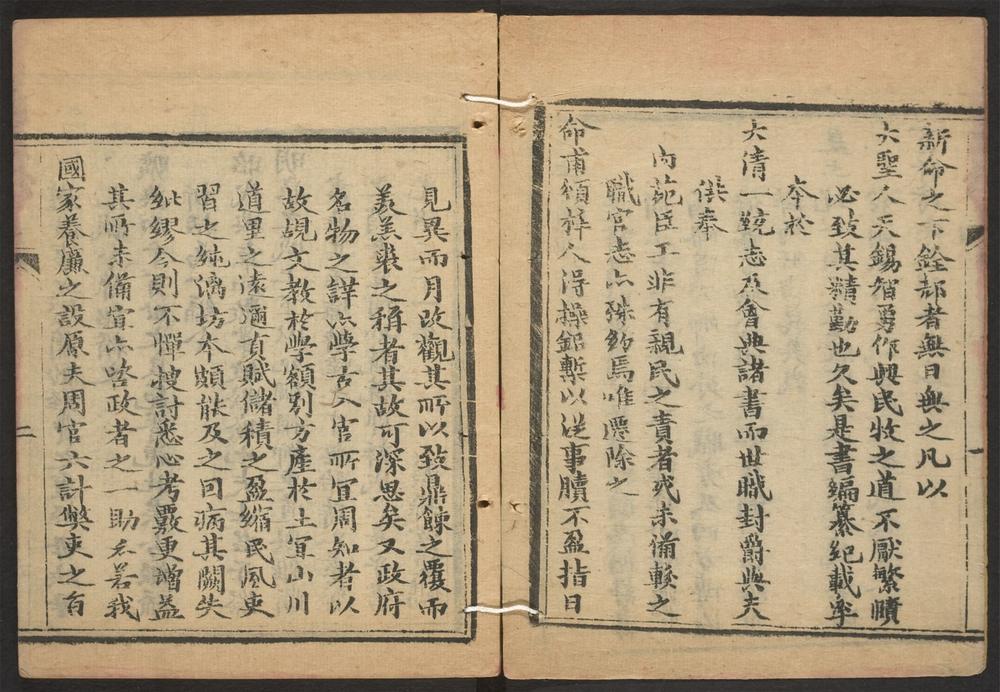 新命之下銓部者無日無之凡以
大聖人天錫智勇作興民牧之道不厭繁賾
必致其精勤也久矣是書編纂紀載率
本於
大清一統志及會典諸書而世職封爵與夫
撰奉
內苑臣工非有親民之責者或未備輳之
職官志亦殊約焉唯遷除之
命甫頒梓人得操鉛槧以從事牘不盈指日
見異而月改觀其所以致鼎餗之覆而
美羔裘之稱者其故可深思矣又政府
名物之詳亦學古入官所宜周知者以
故覘文教於學額別方產於土宜山川
道里之遠邇貢賦儲積之盈縮民風吏
習之純漓坊本頗能及之回病其闕失
紕繆今則不憚搜討悉心考覈更增益
其所未備宜亦咨政者之一助也若我
國家養廉之設原夫周官六計弊吏之旨
二